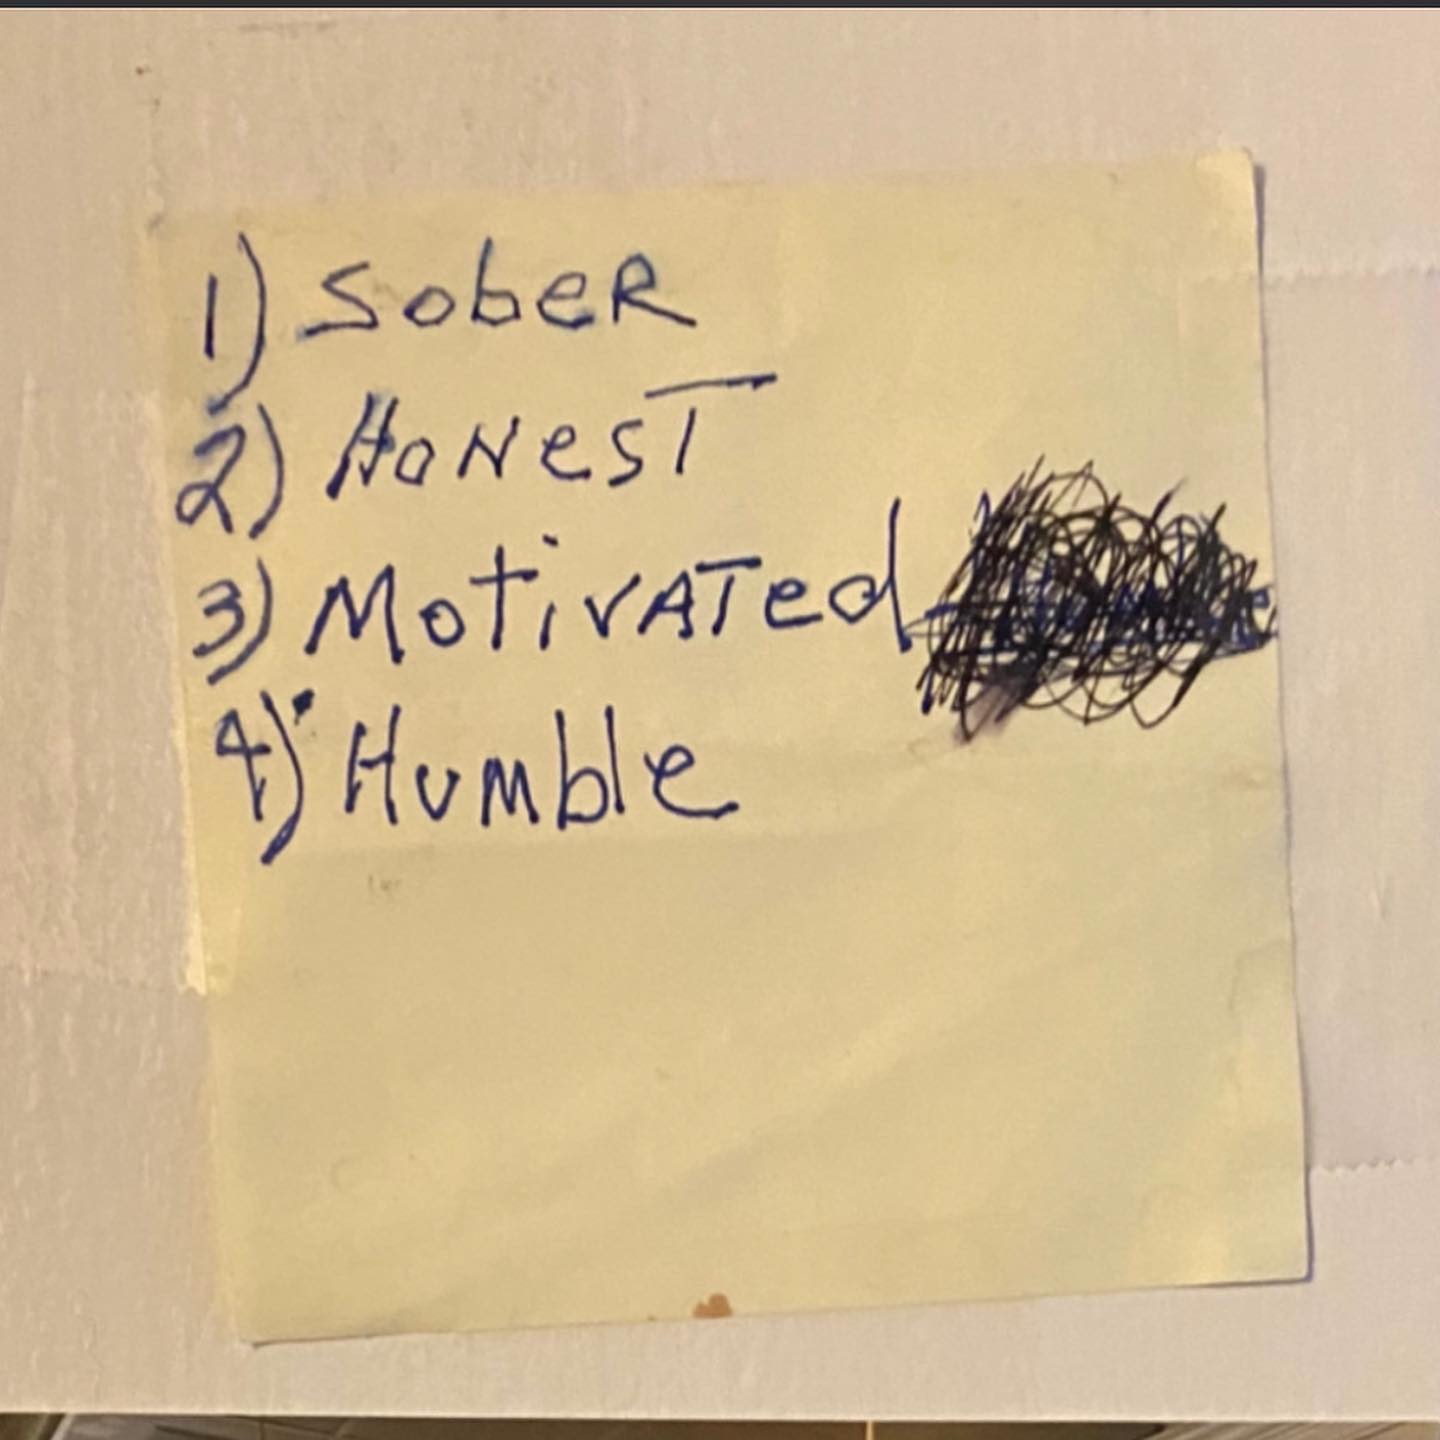 1) SobeR
2) HoNesT
3) MotivATed
4) Humble